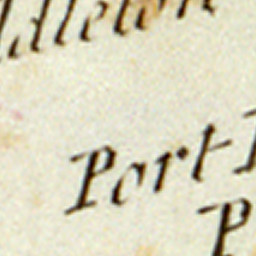 ddleton
Port
P